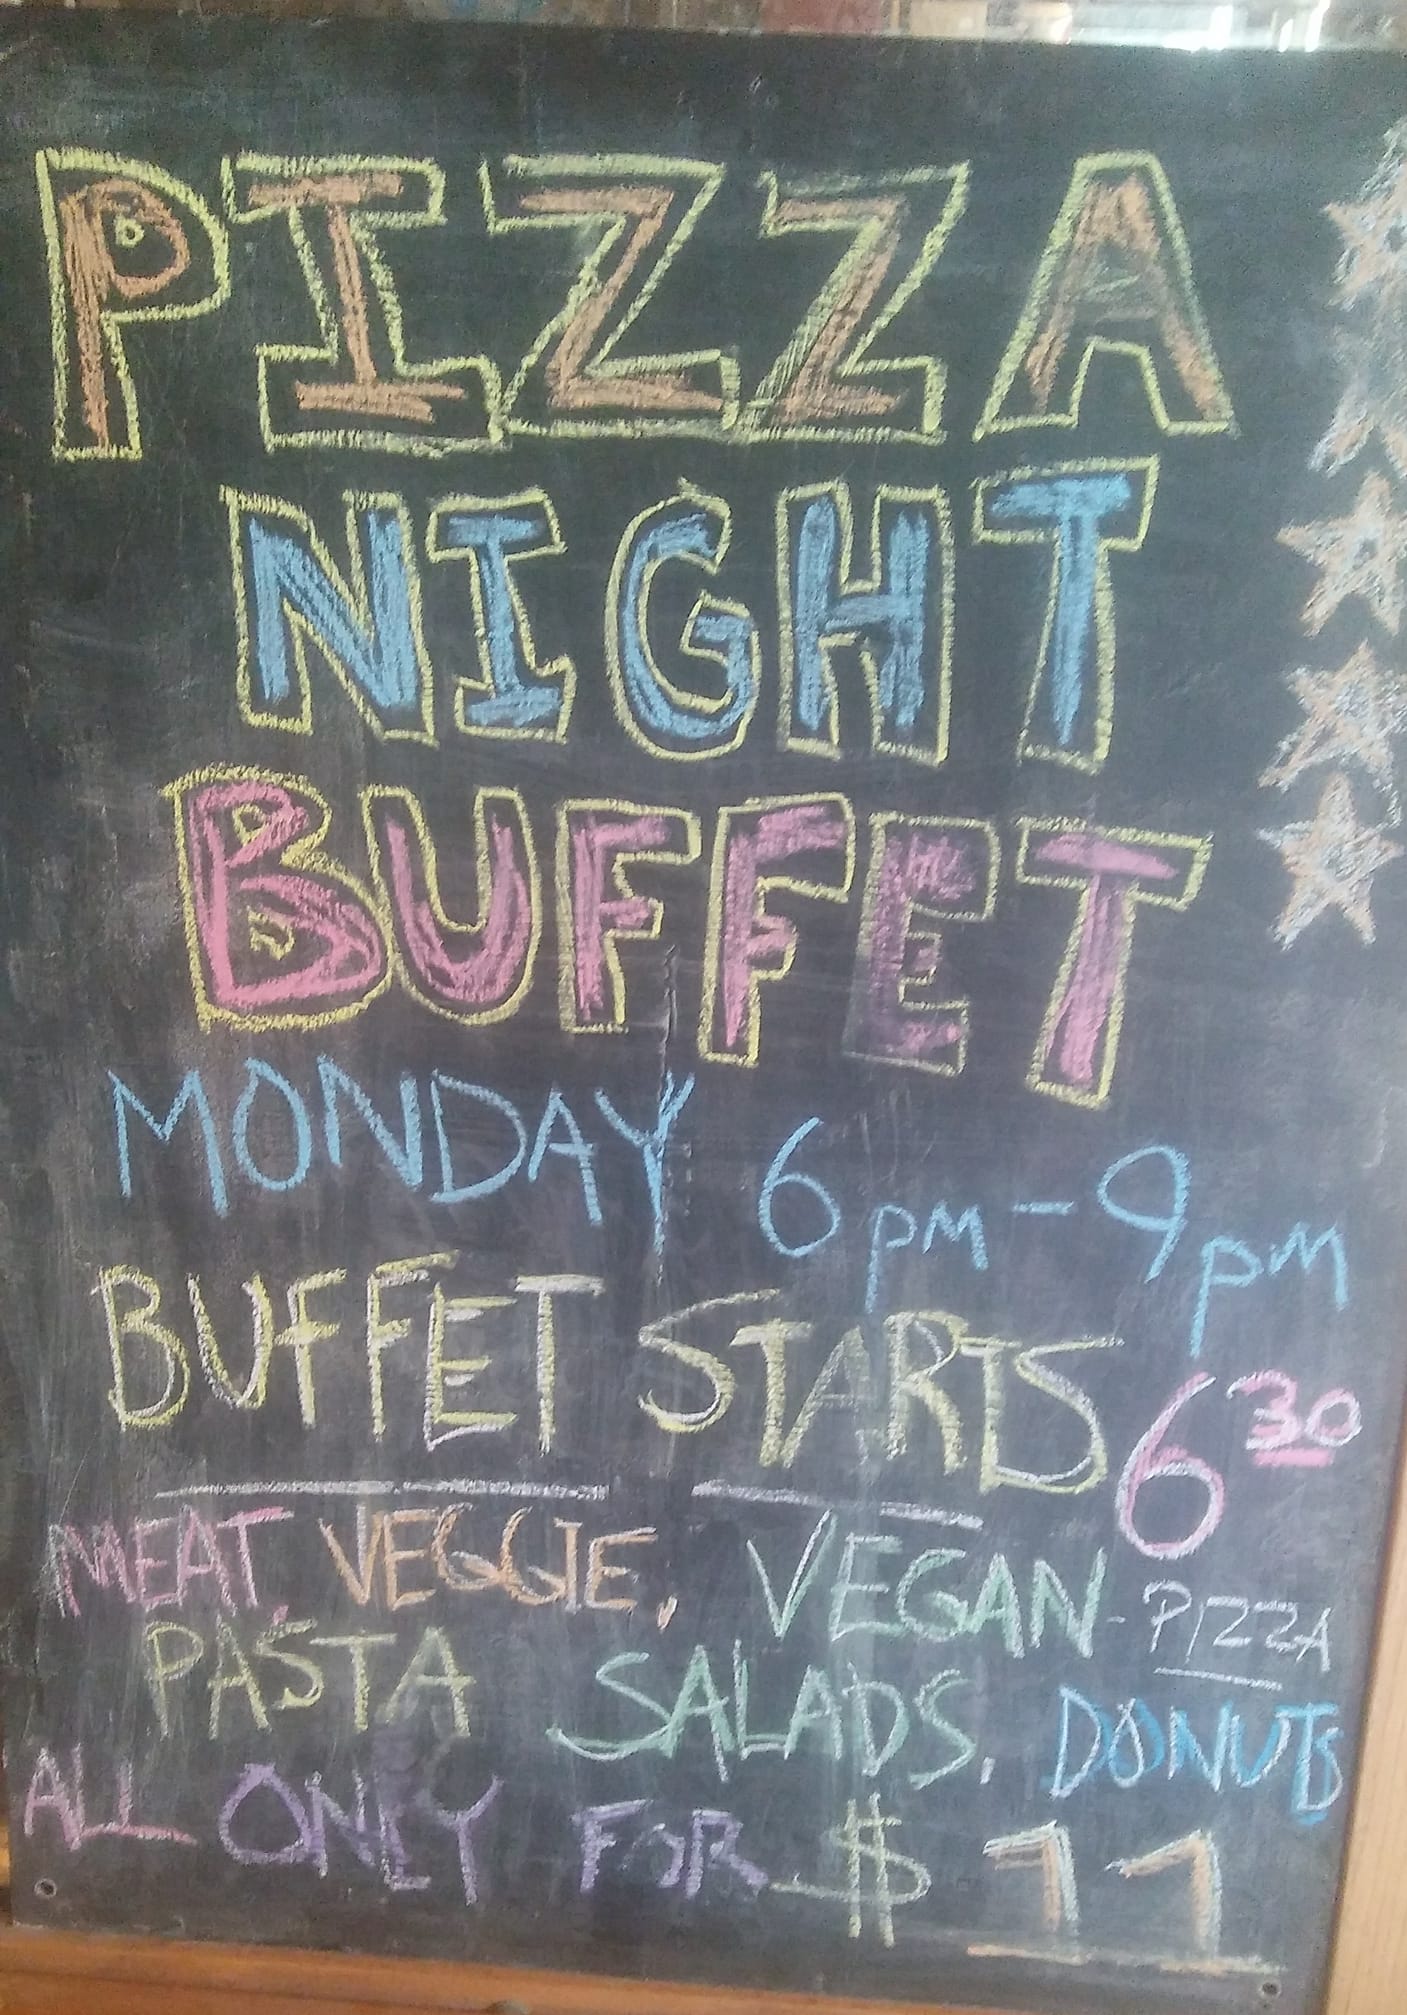 PIZZA
NIGHT
BUFFET
MONDAY 6pm-9pm
BUFFET STARTS 6 30
MEAT, VEGGIE, VEGAN-PIZZA
PASTA SALADS, DONUTS
ALL ONLY FOR $ 11